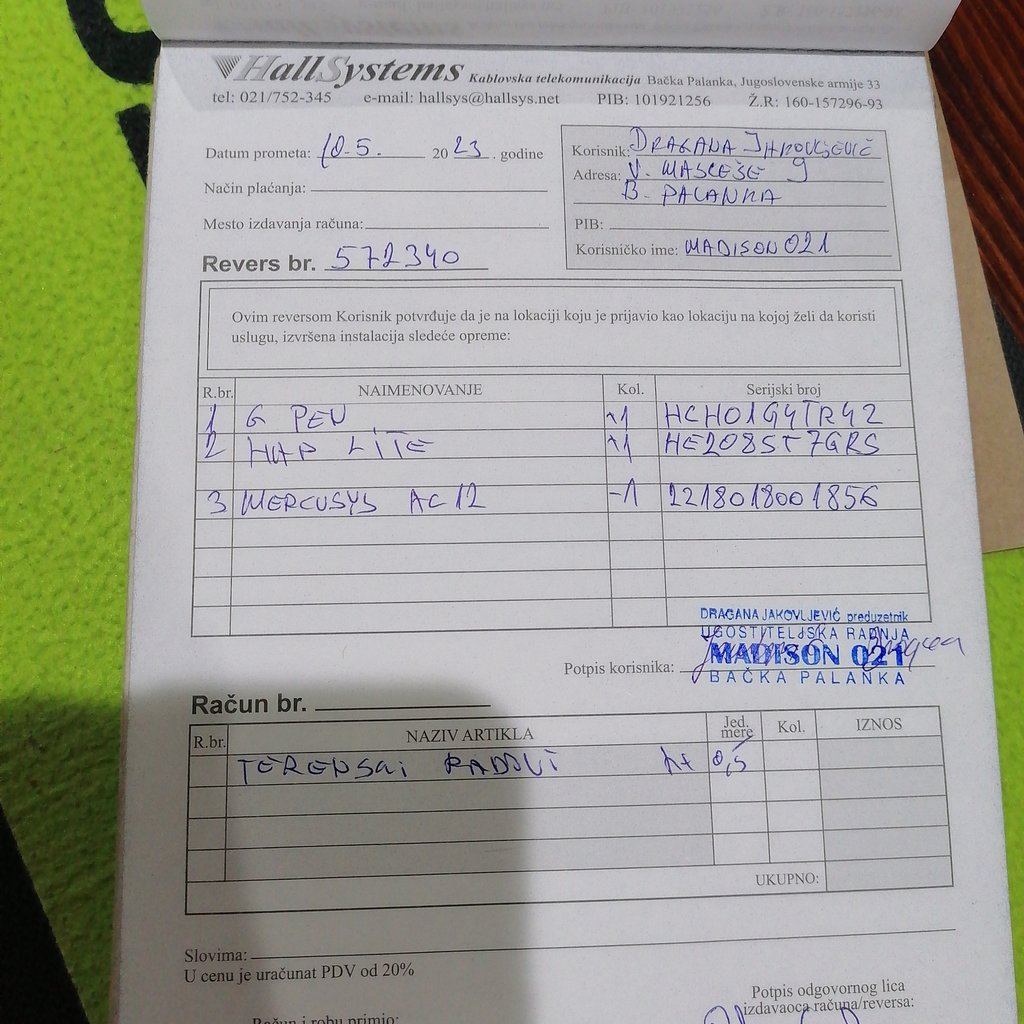 HallSystems Kablovska telekomunikacija Bačka Palanka, Jugoslovenske armije 33
tel: 021/752-345 e-mail: hallsys@hallsys.net PIB: 101921256 Ž.R: 160-157296-93
Datum prometa: 10.5. 2023. godine
Način plaćanja:
Mesto izdavanja računa:
Revers br. 572340
Korisnik: DRAGANA JAKOVLJEVIĆ
Adresa: V. MASLEŠE 9
B. PALANKA
PIB:
Korisničko ime: MADISON 021
Ovim reversom Korisnik potvrđuje da je na lokaciji koju je prijavio kao lokaciju na kojoj želi da koristi
uslugu, izvršena instalacija sledeće opreme:
R.br. NAIMENOVANJE Kol. Serijski broj
1 G PEN 1 HCH01G4TR42
2 HAP LITE 1 HE208ST7GRS
3 MERCUSYS AC12 -1 2218018001856
DRAGANA JAKOVLJEVIĆ preduzetnik
UGOSTITELJSKA RADNJA
MADISON 021
BAČKA PALANKA
Potpis korisnika:
Račun br.
R.br. NAZIV ARTIKLA Jed. mere Kol. IZNOS
TERENSKI RADOVI 0,5
UKUPNO:
Slovima:
U cenu je uračunat PDV od 20%
Potpis odgovornog lica
izdavaoca računa/reversa:
Račun i robu primio: